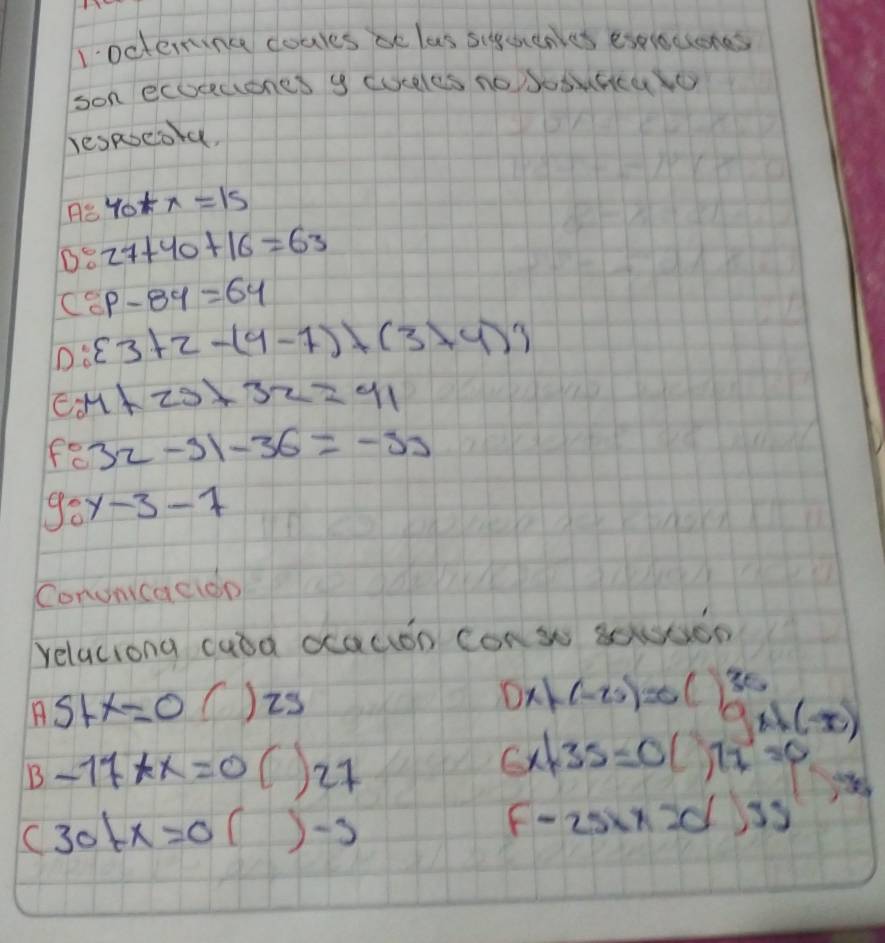 1. Determina coales de las siguientes expreciones
son ecuaciones y cuales no Justifica to
respuesta.
A: 40+x=15
B: 27+40+16=63
C: p-84=64
D: {3+2-(4-7)+(3+4)}
E: M+25+32=41
F: 32-31-36=-35
g: y-3-7
Comunicación
relaciona cada ocación con so solución
A 5+x=0 ( ) 25
B -17+x=0 ( ) 27
C 30+x=0 ( ) -5
D x+(-25)=0 ( )
E x+35=0 ( ) 17
F -25+x=0 ( ) 35
g x+
=0
( )